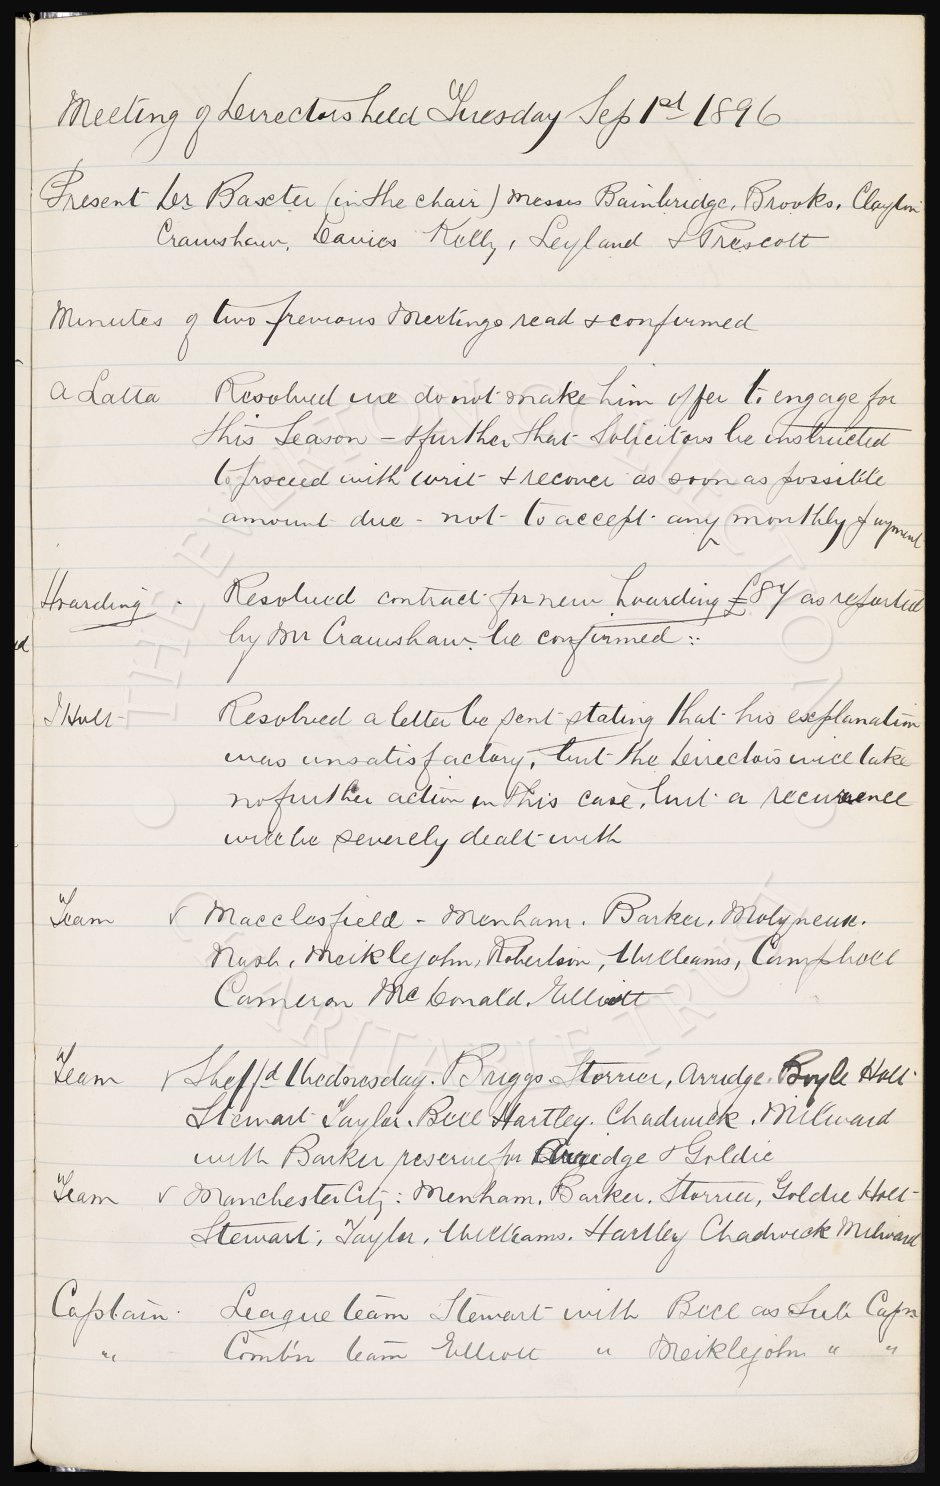 Meeting of Directors held Tuesday Sep 1st 1896
Present Dr Baxter (in the chair) Messrs Bainbridge, Brooks, Clayton
Crawshaw, Davies Kelly, Leyland & Prescott
Minutes of two previous Meetings read & confirmed
A Latta Resolved we do not make him offer to engage for
this Season - & further that Solicitors be instructed
to proceed with writ & recover as soon as possible
amount due - not to accept any monthly payment
Hoarding. Resolved contract for new hoarding £84 as reported
by Mr Crawshaw be confirmed:
J Holt Resolved a letter be sent stating that his explanation
was unsatisfactory, but the Directors will take
no further action in this case, but a recurrence
will be severely dealt with
Team √ Macclesfield - Menham. Barker, Molyneux.
Nash, Meiklejohn, Robertson, Williams, Campbell
Cameron McDonald, Elliott
Team √ Sheffd Wednesday. Briggs. Storrier, Arridge. Boyle Holt
Stewart Taylor. Bell Hartley. Chadwick. Milward
with Barker reserve for Arridge & Goldie
Team √ Manchester City: Menham. Barker. Storrier, Goldie Holt
Stewart, Taylor, Williams. Hartley Chadwick Milward
Captain. League team Stewart with Bell as Sub Capn
" Comb'n team Elliott " Meiklejohn " "
THE EVERTON COLLECTION
CHARITABLE TRUST